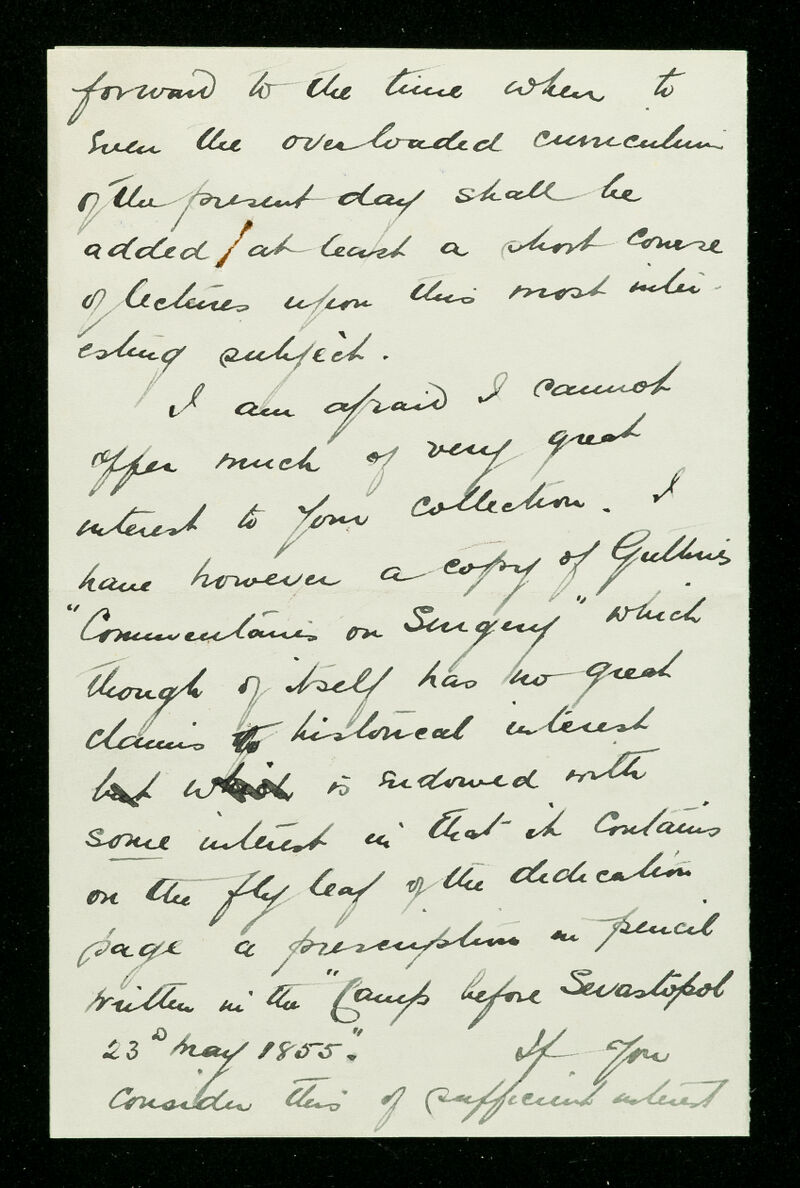 forward to the time when to
even the overloaded curriculum
of the present day shall be
added / at least a short course
of lectures upon this most inter-
esting subject.
I am afraid I cannot
offer much of very great
interest to your collection. I
have however a copy of Guthrie's
"Commentaries on Surgery" which
though of itself has no great
claims to historical interest
but which is endowed with
some interest in that it contains
on the fly leaf of the dedication
page a prescription in pencil
written in the "Camp before Sevastopol
23d May 1855".      If you
consider this of sufficient interest